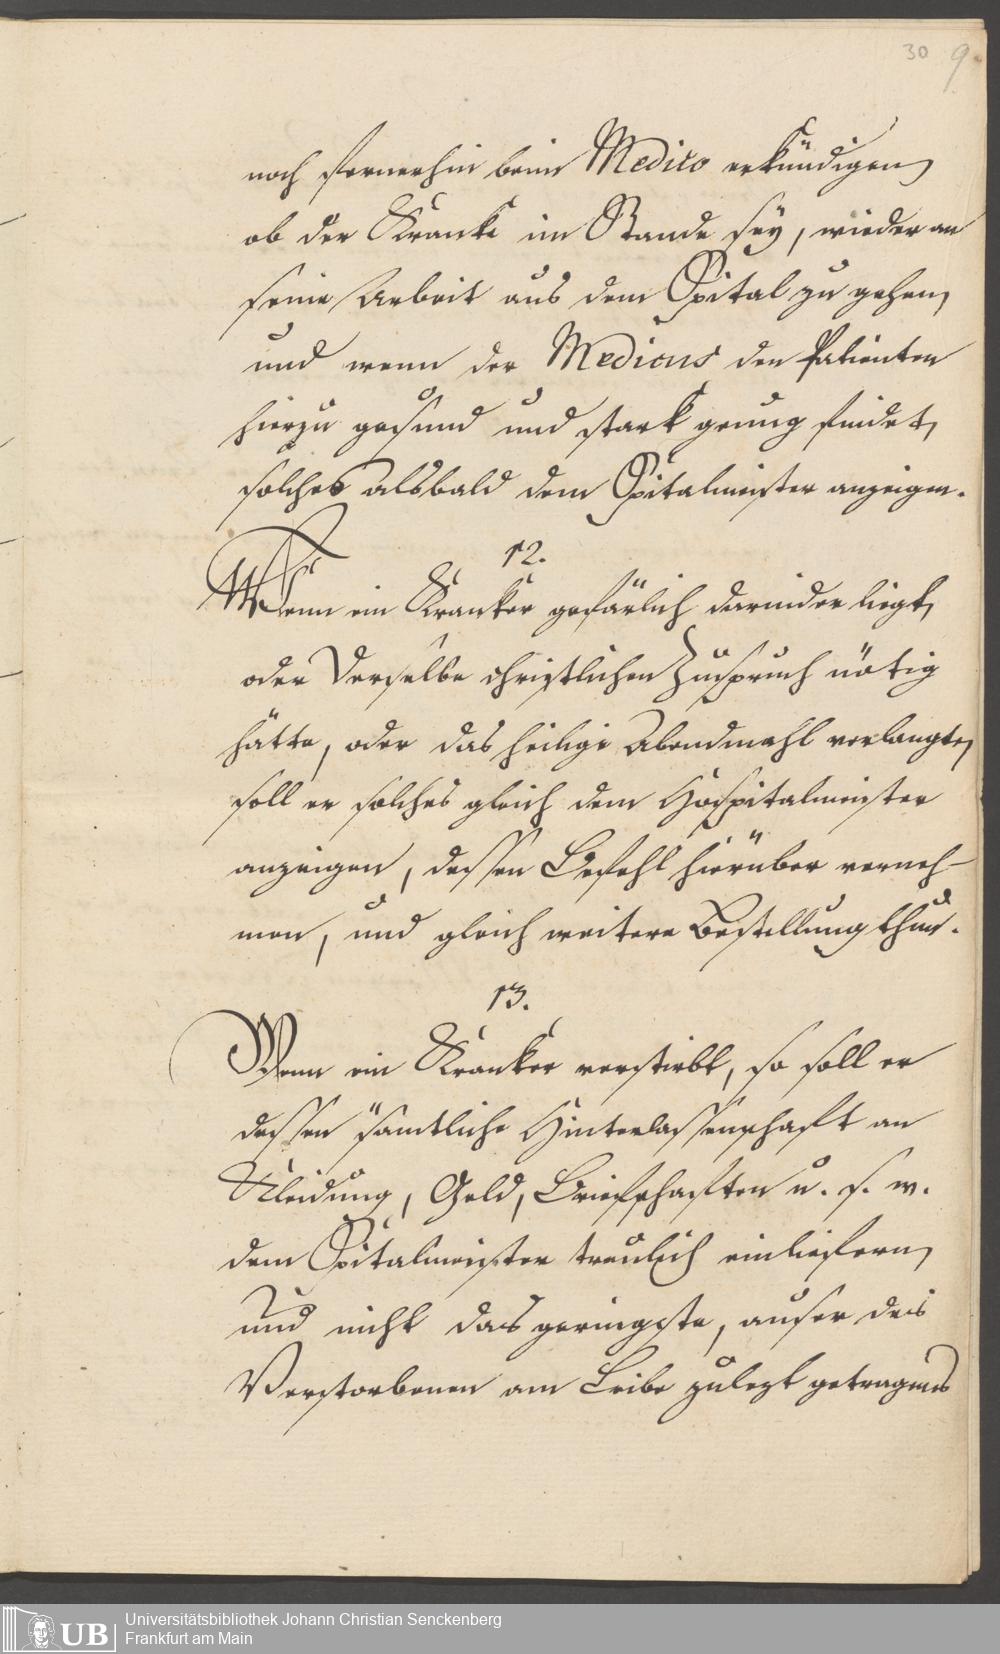 30 9.
noch fernerhin beim Medico erkündigen,
ob der Kranke im Stande sey, wieder an
seine Arbeit aus dem Spital zu gehen,
und wenn der Medicus den Patienten
hierzu gesund und stark genug findet,
solches alsbald dem Spitalmeister anzeigen.
12.
Wenn ein Kranker gefärlich darnider liegt,
oder Derselbe christlichen Zuspruch nötig
hätte, oder das heilige Abendmahl verlangte,
soll er solches gleich dem Hospitalmeister
anzeigen, dessen Befehl hierüber verneh-
men, und gleich weitere Bestellung thun.
13.
Wenn ein Kranker verstirbt, so soll er
dessen sämtliche Hinterlassenschaft an
Kleidung, Geld, Briefschaften u. s. w.
dem Spitalmeister treulich einliefern,
und nicht das geringste, auser des
Verstorbenen am Leibe zulezt getragenes
UB
Universitätsbibliothek Johann Christian Senckenberg
Frankfurt am Main